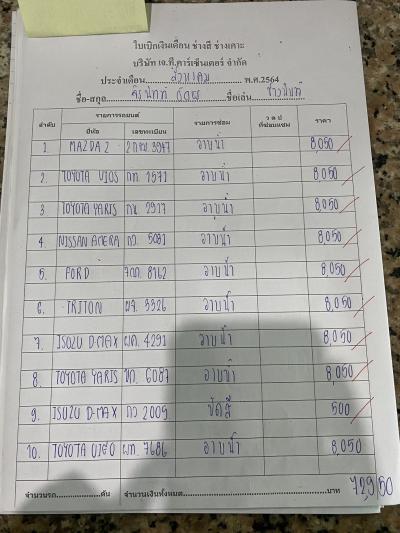 ใบเบิกเงินเดือน ช่างสี ช่างเคาะ
บริษัท เจ.ที.คาร์เซ็นเตอร์ จำกัด
ประจำเดือน สิงหาคม พ.ศ.2564
ชื่อ-สกุล ชื่อเล่น
ลำดับ รายการรถยนต์ รายการซ่อม ว ด ป ที่ซ่อมแซม ราคา
ยี่ห้อ เลขทะเบียน
1. MAZDA 2 3947 อาบน้ำ 8,050
2. TOYOTA VIOS 1571 อาบน้ำ 8,050
3 TOYOTA YARIS กน 2917 อาบน้ำ 8,050
4. NISSAN AMERA กว. 5081 อาบน้ำ 8,050
5. FORD 8162 อาบน้ำ 8,050
6. TRITON ผจ. 3326 อาบน้ำ 8,050
7. ISUZU D-MAX ผค. 4291 อาบน้ำ 8,050
8. TOYOTA YARIS 6087 อาบน้ำ 8,050
9. ISUZU D-MAX กว 2009 ขัดสี 500
10. TOYOTA VIGO ผท. 7686 อาบน้ำ 8,050
จำนวนรถ คัน จำนวนเงินทั้งหมด บาท 72,950